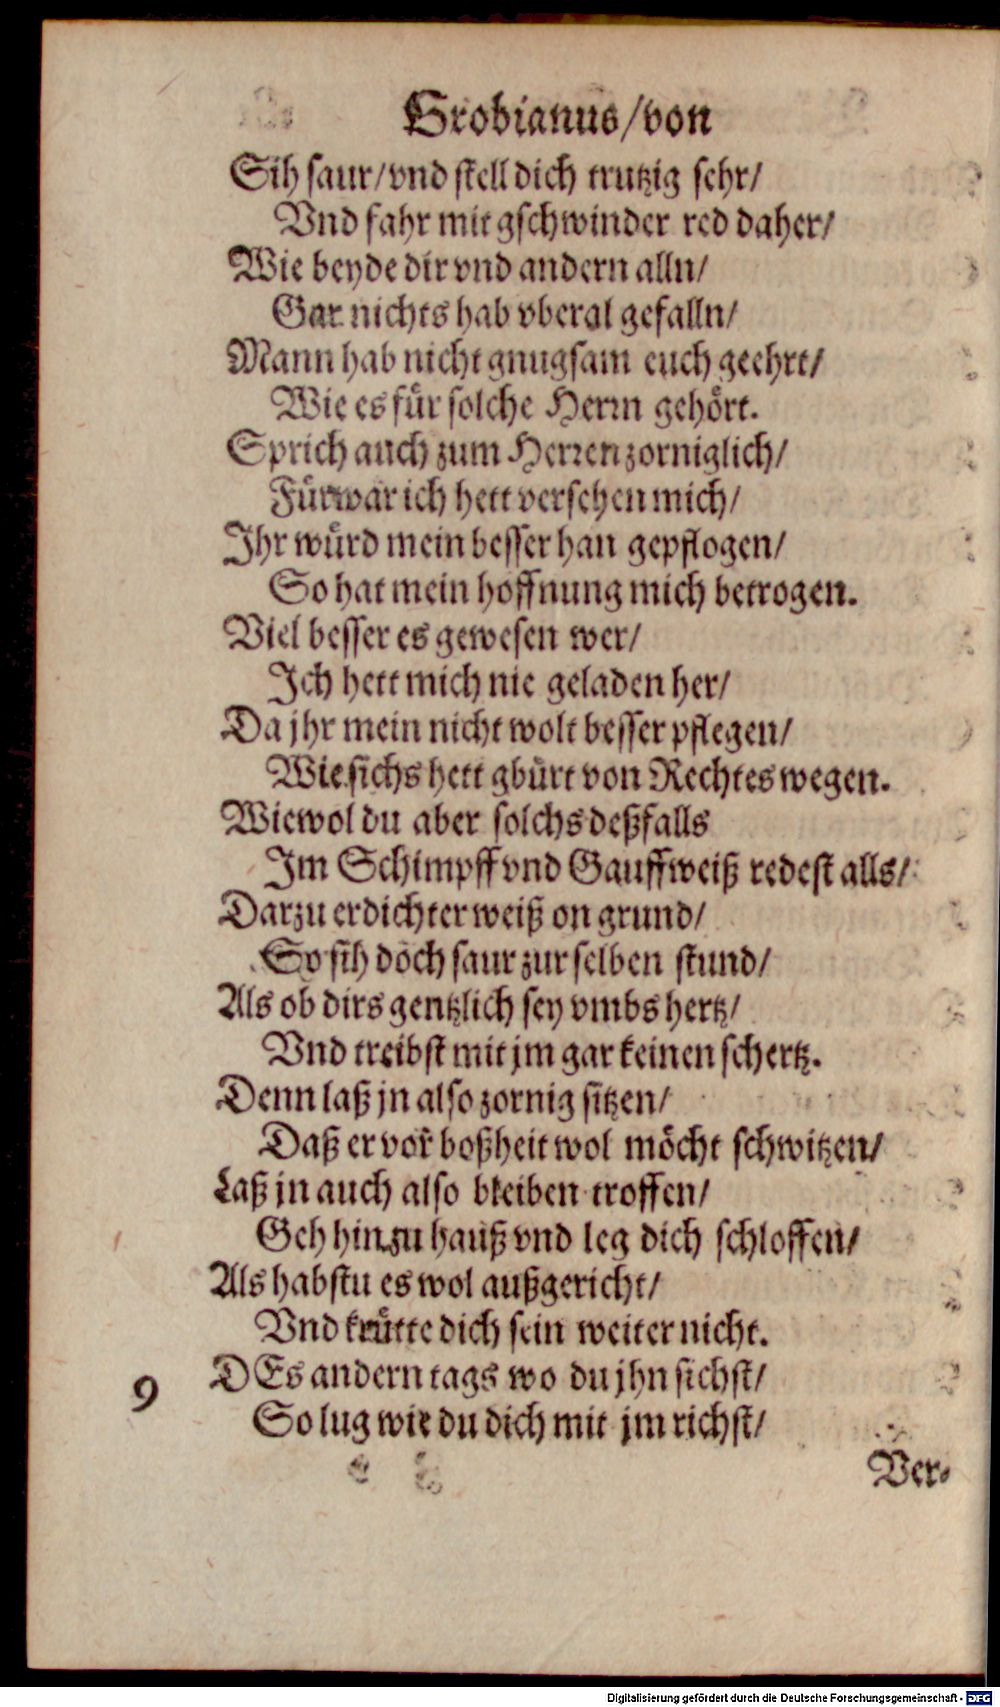 Grobianus/von
Sih saur/vnd stell dich trutzig sehr/
Vnd fahr mit gschwinder red daher/
Wie beyde dir vnd andern alln/
Gar nichts hab vberal gefalln/
Mann hab nicht gnugsam euch geehrt/
Wie es für solche Herrn gehört.
Sprich auch zum Herren zorniglich/
Fürwar ich hett versehen mich/
Ihr würd mein besser han gepflogen/
So hat mein hoffnung mich betrogen.
Viel besser es gewesen wer/
Ich hett mich nie geladen her/
Da jhr mein nicht wolt besser pflegen/
Wie sichs hett gbürt von Rechtes wegen.
Wiewol du aber solchs deßfalls
Im Schimpff vnd Gauffweiß redest alls/
Darzu erdichter weiß on grund/
So sih doch saur zur selben stund/
Als ob dirs gentzlich sey vmbs hertz/
Vnd treibst mit jm gar keinen schertz.
Denn laß jn also zornig sitzen/
Daß er vor boßheit wol möcht schwitzen/
Laß jn auch also bleiben troffen/
Geh hin zu hauß vnd leg dich schloffen/
Als habstu es wol außgericht/
Vnd krütte dich sein weiter nicht.
9 DEs andern tags wo du jhn sichst/
So lug wie du dich mit jm richst/
Ver-
Digitalisierung gefördert durch die Deutsche Forschungsgemeinschaft - DFG